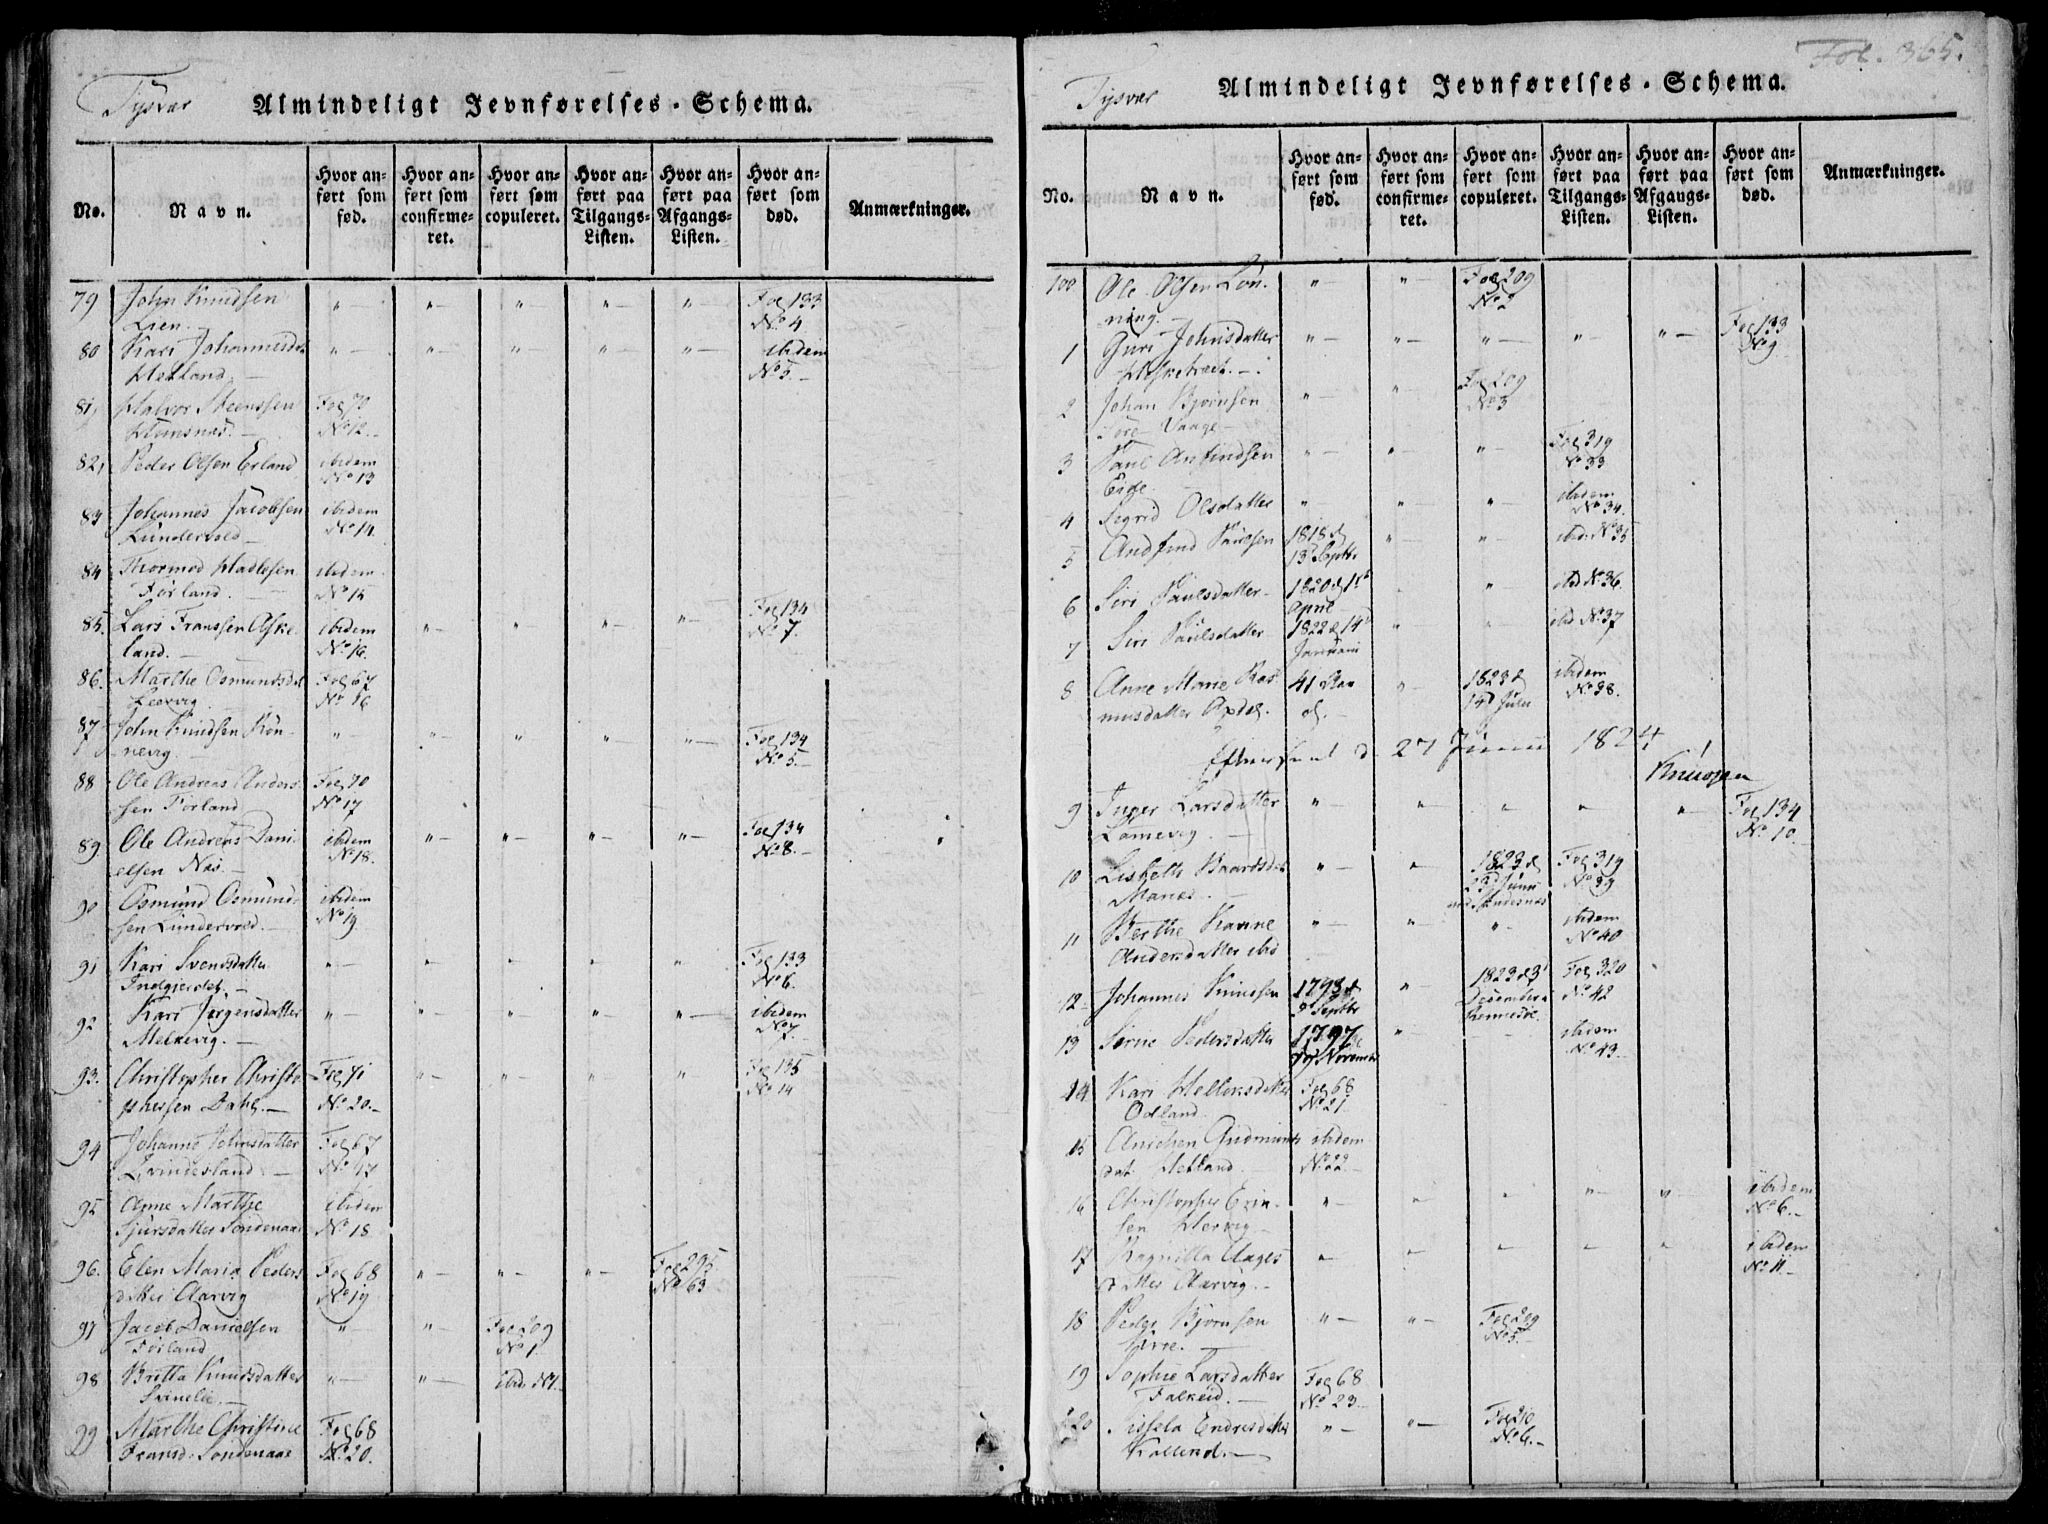 Tysvær
Almindeligt Jevnførelses-Schema.
No.
Navn.
Hvor anført som fød.
Hvor anført som confirmeret.
Hvor anført som copuleret.
Hvor anført paa Tilgangs-Listen.
Hvor anført paa Afgangs-Listen.
Hvor anført som død.
Anmærkninger.
79 John Knudsen " " " " " Fol 133
Lien. No 4
80 Kari Johannesdat " " " " " ibidem
Hetland No 5.
81, Halvor Steenssen Fol 70
No 12.
82, Peder Olsen Erland ibidem
No 13
83 Johannes Jacobsen ibidem
Lundervold No 14.
84 Thormod Hadlesen ibidem
Førland. No 15
85. Lars Franssen Aske- ibidem " " " " Fol 134
land. No 16. No 7.
86. Marthe Osmundsdat Fol 67
Leervig No 16
87 John Knudsen Kön- " " " " " Fol 134
nevig No 5.
88 Ole Andreas Anders- Fol 70
sen Førland No 17
89. Ole Andreas Dani- ibidem " " " " Fol 134
elsen Nås. No 18. No 8.
90 Osmund Osmund- ibidem
sen Lundervold. No 19
91 Kari Svendsdatter " " " " " Fol 133
Indgierdet. No 6.
92 Kari Jørgensdatter " " " " " ibidem
Melkevig. No 7.
93. Christopher Christo- Fol 71 " " " " Fol 135
phersen Dahl. No 20. No 14
94 Johanne Johnsdatter Fol 67
Qvindesland No 17
95 Anne Marthe ibidem
Sjursdatter Söndenaae No 18
96. Elen Maria Peders- Fol 68 " " " Fol 295
datter Aarvig No 19 No 63
97 Jacob Danielsen " " Fol 209
Førland No 1
98 Britta Knudsdatter " " ibid. No 1.
99 Marthe Christine Fol 68
Fransd: Söndenaae No 20.
Fol. 365.
Tysvær
Almindeligt Jevnførelses-Schema.
No.
Navn.
Hvor anført som fød.
Hvor anført som confirmeret.
Hvor anført som copuleret.
Hvor anført paa Tilgangs-Listen.
Hvor anført paa Afgangs-Listen.
Hvor anført som død.
Anmærkninger.
100 Ole Olsen Lön- " " Fol 209
ning. No 2
1 Guri Johnsdatter " " " " " Fol 133
No 9
2 Johan Bjørnsen " " Fol 209
Vaage No 3
3 Paul Anfindsen " " " Fol 319
Eide No 33
4 Segrid Olsdatter " " " ibidem
No 34.
5 Andfind Paulsen 1818 d " " ibid: No 35
13 Septbr
6 Siri Paulsdatter 1820 d 15 " " ibid No 36.
April
7 Siri Paulsdatter 1822 d 14 " " ibid No 37
Januari
8 Anne Marie Ras- 41 Aar " 1823 d ibidem
musdatter Apdel. 14 Juli No 38.
Efterseet d. 27 Junii 1824
9 Inger Larsdatter " " " " " Fol 134
No 10.
10 Lisbeth Baardsdat " " 1823 d Fol 319
Manes. 23 Junii No 39
11 Berthe Karine " " " ibidem
Andersdatter ibid No 40
12. Johannes Knudsen 1793 d " 1823 d 3 Fol 320
9 Septbr Desember No 42
13 Sirine Pedersdatter 1797 " " ibidem
November No 43.
14 Kari Helleksdatter Fol 68
Odland No 21
15 Anichen Gudmunds ibidem
dat Hetland No 22
16 Christopher Erik- " " " " " ibidem
sen Hervig No 6.
17 Ragnilla Aages " " " " " ibidem
datter Aarvig. No 11
18 Peder Bjørnsen " " Fol 209
No 5
19 Sophie Larsdatter Fol 68
Falkeid. No 23.
120 Sissela Endresdatter " " Fol 210
No 6.